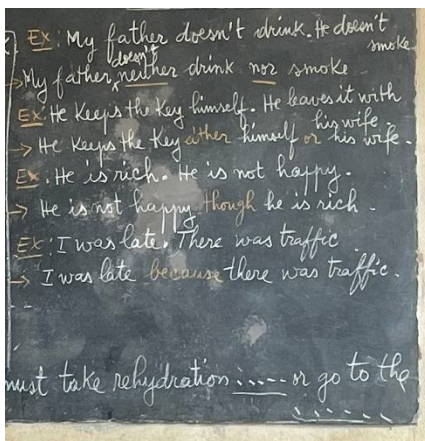 Ex: My father doesn't drink. He doesn't
smoke
doesn't
→ My father, neither drink nor smoke
Ex: He keeps the key himself. He leaves it with
his wife.
→ He keeps the key either himself or his wife.
Ex: He is rich. He is not happy.
→ He is not happy though he is rich.
Ex: I was late. There was traffic
→ I was late because there was traffic.
must take rehydration ...... or go to the
......